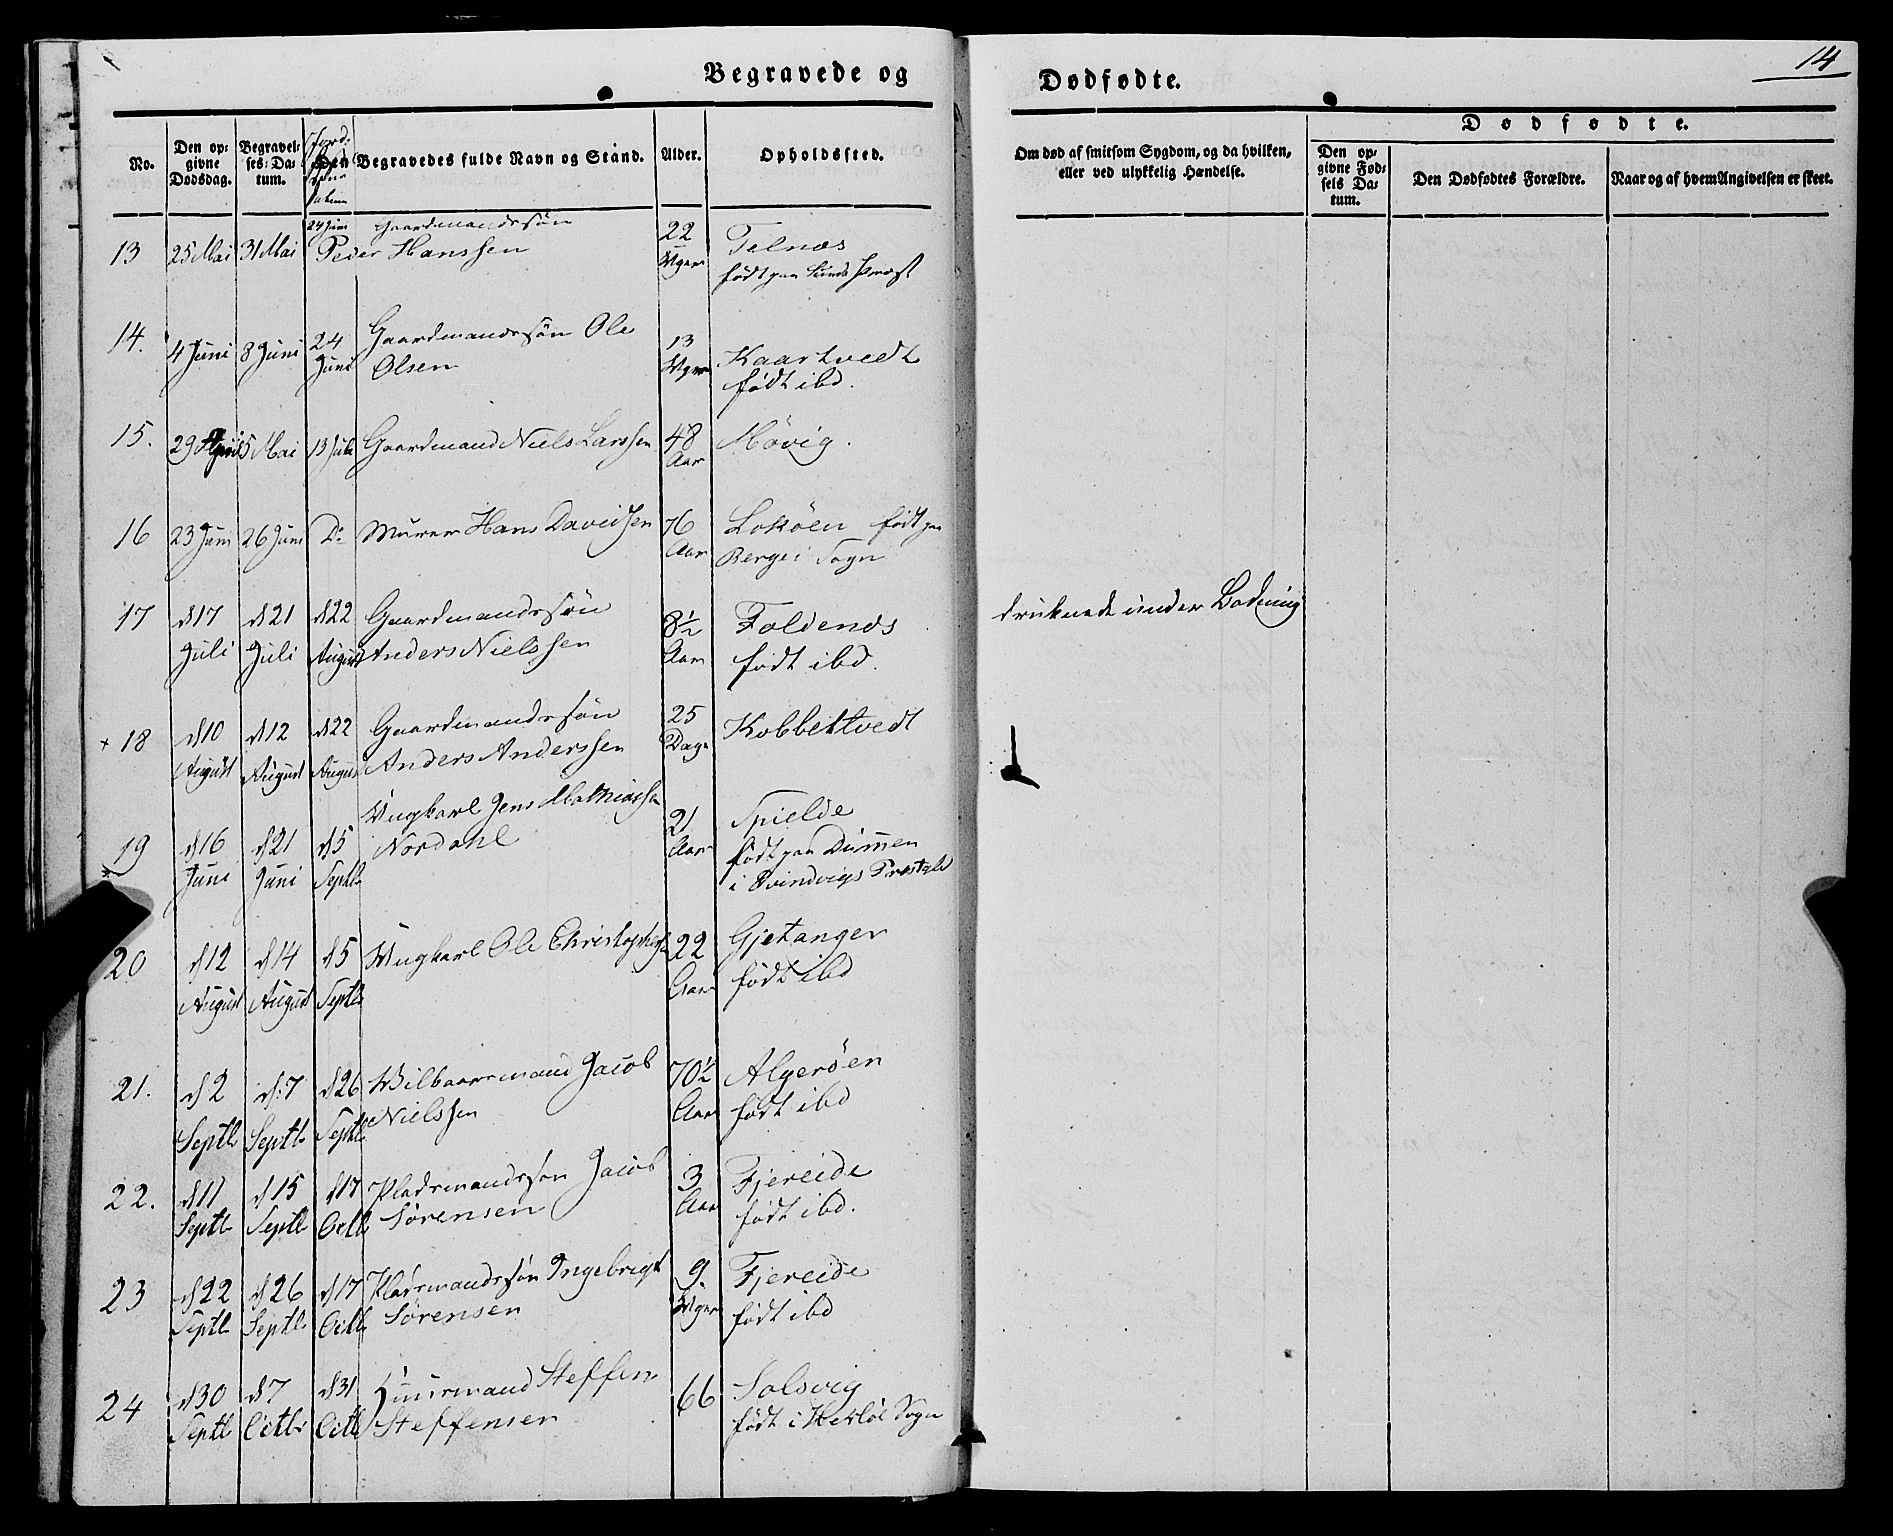 14
Begravede og Dødfødte.
No.
Den opgivne Dødsdag.
Begravelses-Datum.
Den Begravedes fulde Navn og Stand.
Alder.
Opholdssted.
Om død af smitsom Sygdom, og da hvilken, eller ved ulykkelig Hændelse.
Dødfødte.
Den opgivne Fødsels Datum.
Den Dødfødtes Forældre.
Naar og af hvem Angivelsen er skeet.
13 25 Mai 31 Mai 24 Juni Gaardmandssøn 22 Telnæs
Peder Hanssen Uger født paa Sunds Præst
14. 4 Juni 8 Juni 24 Juni Gaardmandssøn Ole 13 Kaartvedt
Olsen Uger født ibd.
15. 29 April 5 Mai 13 Juli Gaardmand Niels Larssen 48 Aar Møvig.
16 23 Juni 26 Juni Do Murer Hans Davidsen 76 Lokøen født paa
Aar Berge i Sogn
17 d 17 d 21 d 22 Gaardmandssøn 8½ Foldenes druknede under Badning
Juli Juli August Anders Nielssen Aar født ibd.
+ 18 d 10 d 12 d 22 Gaardmandssøn 25 Kobbeltvedt
August August August Anders Anderssen Dage
19 d 16 d 21 d 5 Ungkarl Jens Mathiassen 21 Spielde
Juni Juni Septbr Nordahl Aar født paa Dummen
i Evindvigs Præstgld
20 d 12 d 14 d 5 Ungkarl Ole Christophersen 22 Gjetanger
August August Septbr Aar født ibd
21. d 2 d: 7 d 26 Vilkaarsmand Jacob 70½ Algerøen
Septbr Septbr Septbr Nielssen Aar født ibd
22. d 11 d 15 d 17 Pladsmandssøn Jacob 3 Fjereide
Septbr Septbr Octbr Sørensen Aar født ibd.
23 d 22 d 26 d 17 Pladsmandssøn Ingebrigt 9. Fjereide
Septbr Septbr Octbr Sørensen Uger født ibd
24 d 30 d 7 d 31 Huusmand Steffen 66 Solsvig
Septbr Octbr Octbr Steffensen født i Herløe Sogn